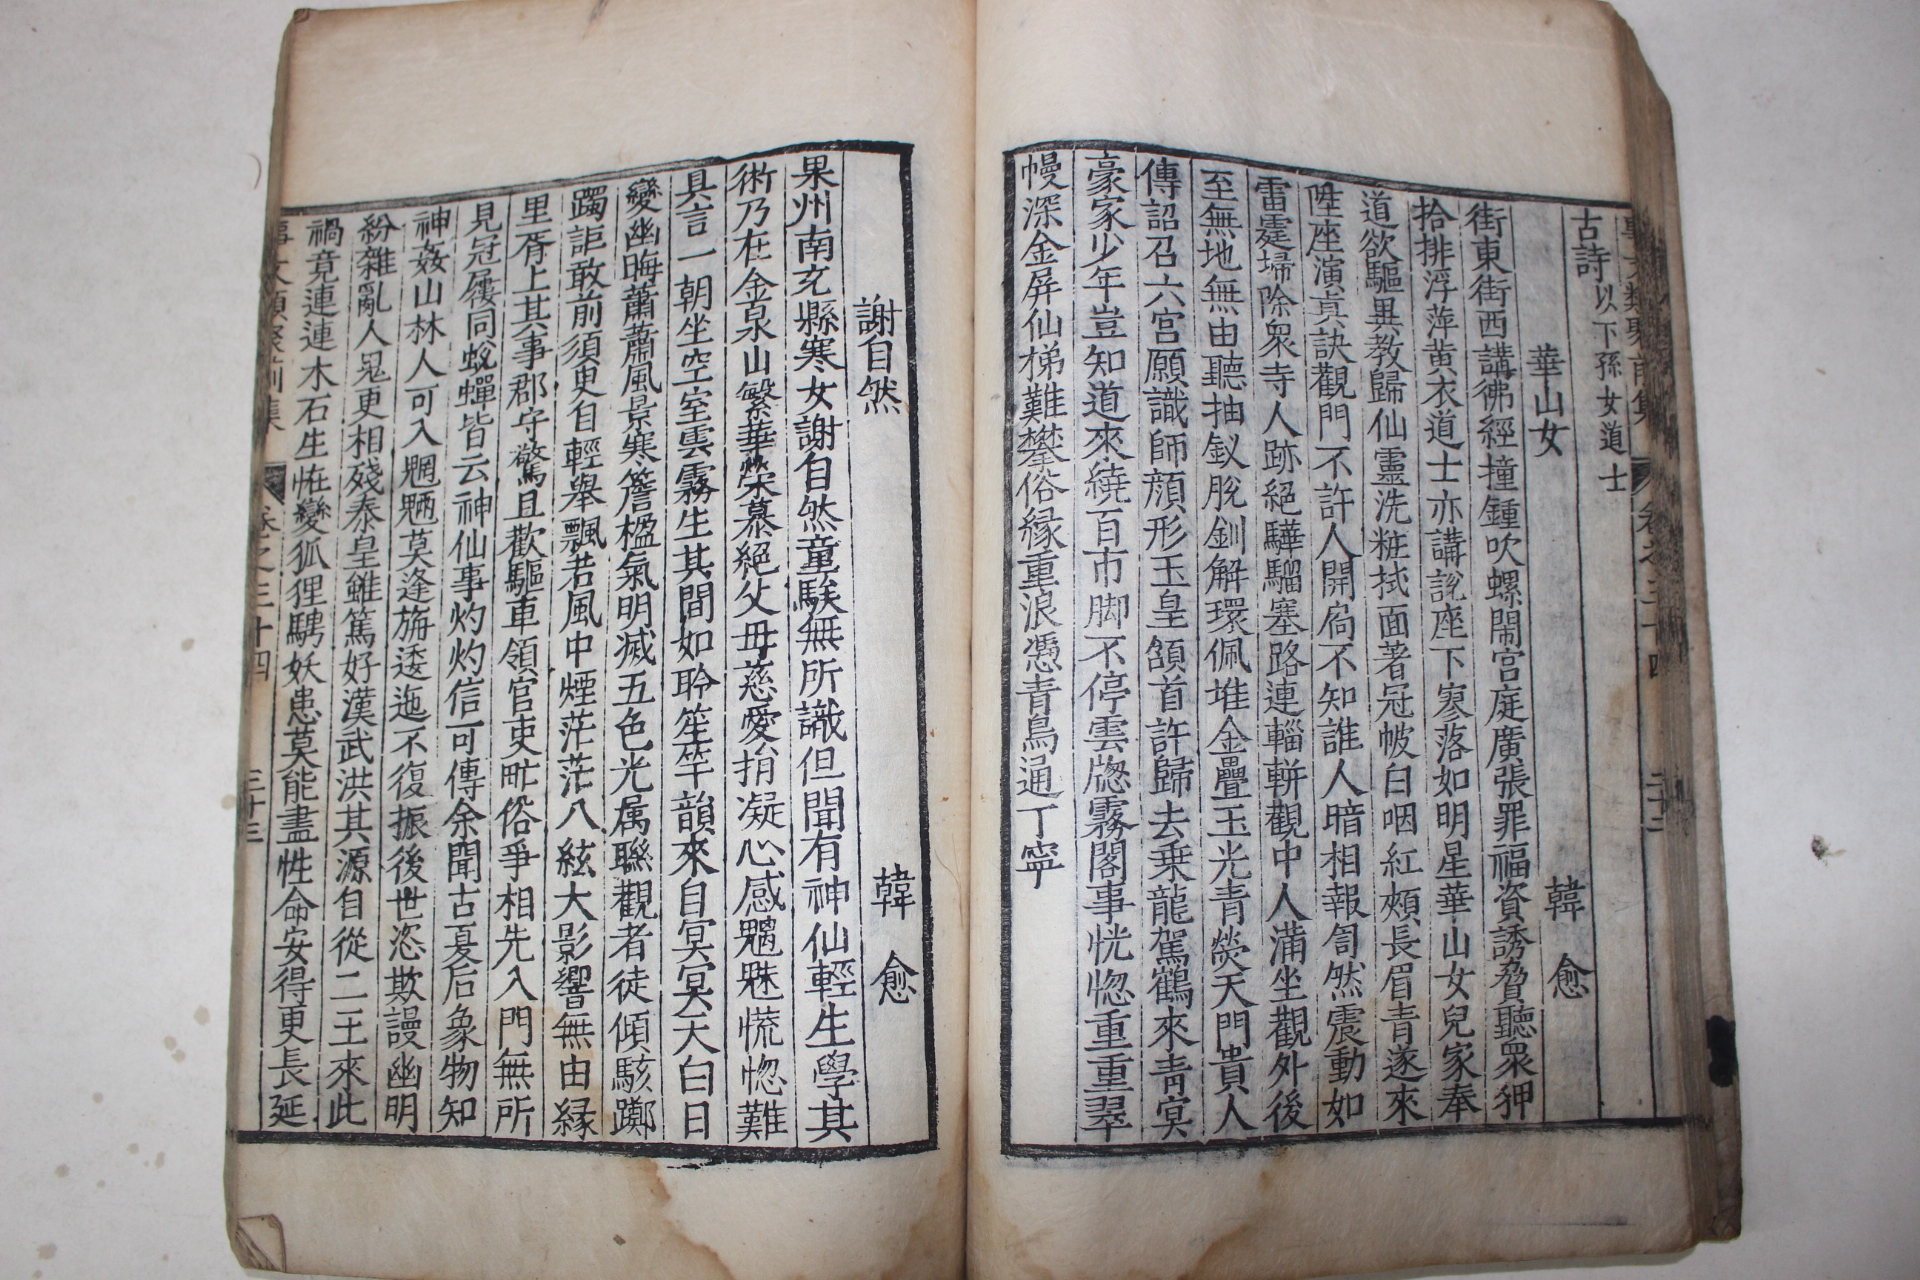 古詩 以下孫女道士
華山女 韓愈
街東街西講佛經撞鍾吹螺閙宫庭廣張罪福資誘脅聽眾狎
拾排浮萍黄衣道士亦講說座下寥落如明星華山女兒家奉
道欲驅異教歸仙靈洗粧拭面著冠帔白咽紅頰長眉青遂來
陞座演真訣觀門不許人開扃不知誰人暗相報訇然震動如
雷霆埽除衆寺人跡絕驊騮塞路連輜軿觀中人滿坐觀外後
至無地無由聽抽釵脫釧解環佩堆金疊玉光青熒天門貴人
傳詔召六宮願識師顔形玉皇頷首許歸去乗龍駕鶴來靑冥
豪家少年豈知道來繞百帀脚不停雲牎霧閣事恍惚重重翠
幔深金屛仙梯難攀俗縁重浪憑青鳥通丁寧
謝自然 韓愈
果州南充縣寒女謝自然童騃無所識但聞有神仙輕生學其
術乃在金泉山繁華榮慕絕父毋慈愛捐凝心感魑魅慌惚難
具言一朝坐空室雲霧生其間如聆笙竽韻來自冥冥天白日
變幽晦蕭蕭風景寒簷楹氣明滅五色光属聯觀者徒傾駭躑
躅詎敢前須臾自輕舉飄若風中煙茫茫八絃大影響無由縁
里胥上其事郡守驚且歎驅車領官吏甿俗爭相先入門無所
見冠屨同蛻蟬皆云神仙事灼灼信可傳余聞古夏后象物知
神姦山林人可入魍魎莫逢旃逶迤不復振後世恣欺謾幽明
紛雜亂人鬼更相殘秦皇雖篤好漢武洪其源自從二主來此
禍竟連連木石生恠變狐狸騁妖患莫能盡性命安得更長延
卷之三十四 三十三